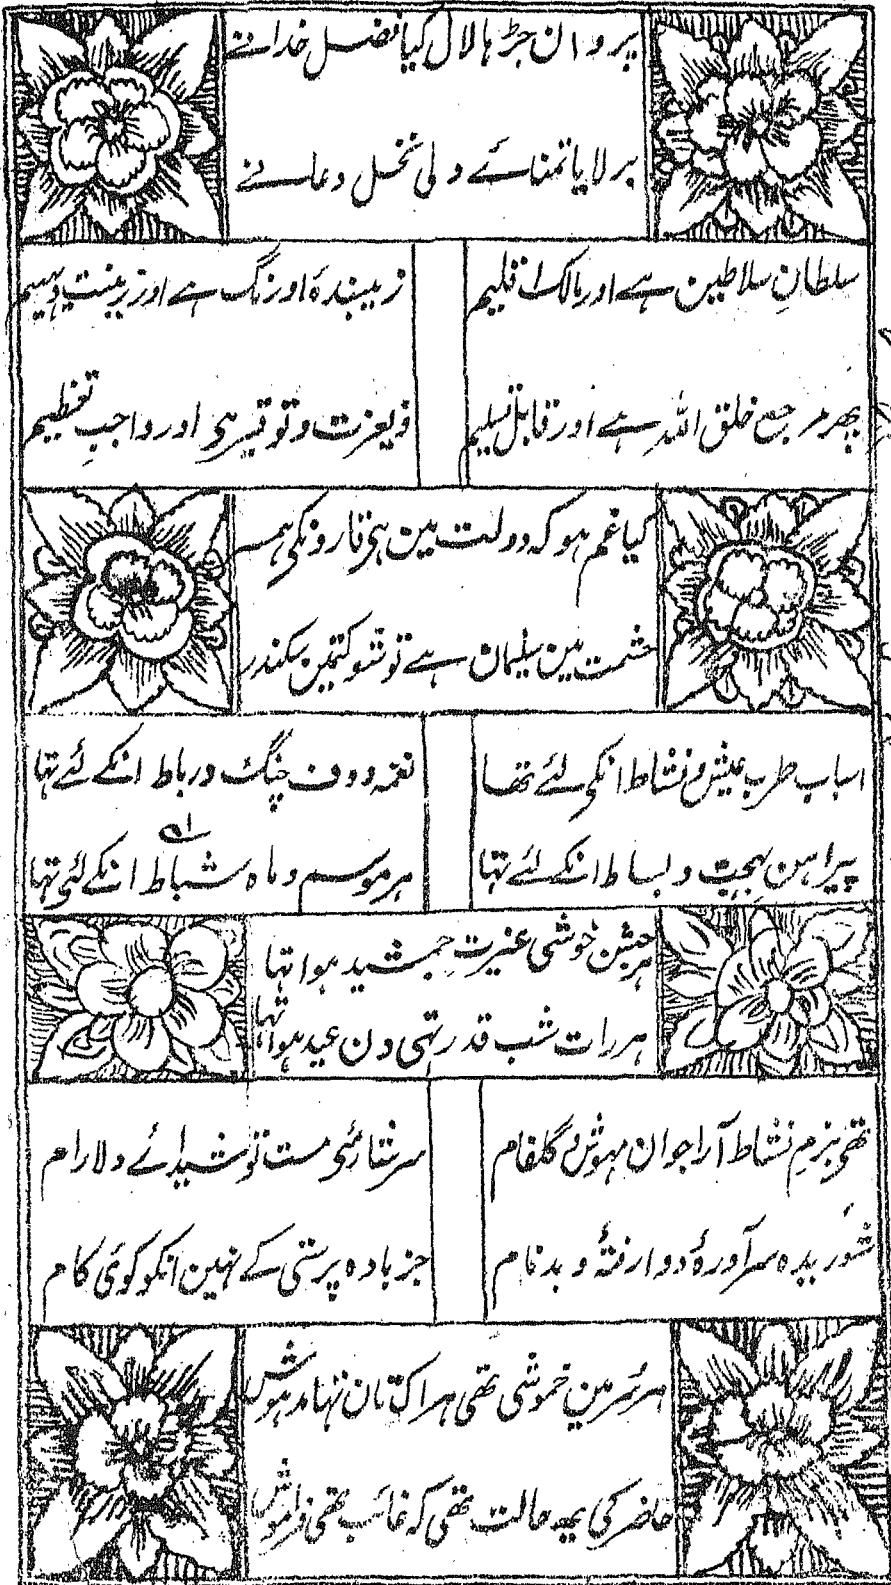 پروان چڑہا لال کیا فضل خدا نے
بر لایا تمنائے دلی نخل دعا نے
سلطانِ سلاطین ہے اور مالک اقلیم
زیبندۂ اورنگ ہے اور زینت دیہیم
پھر مرجع خلق اللہ ہے اور قابل تسلیم
ذیعزت و توقیر ہی اور واجبِ تعظیم
کیا غم ہو کہ دولت مین ہی قارونکی ہمسر
حشمت مین سلیمان ہے تو شوکتمین سکندر
اسباب طرب عیش و نشاط انکی لئے تھا
نغمہ و دف چنگ و رباط انکے لئے تہا
پیراہنِ بہجت و بساط انکے لئے تہا
ہر موسم و ماہ شباط انکے لئی تہا
ہر جشن خوشی غیرتِ جمشید ہوا تہا
ہر رات شب قدر تہی دن عید ہوا تہا
تھی بزمِ نشاط آرا جوان مہوش و گلفام
سرشار مئی مست تو شیدائے دلارام
شوریدہ سر آورۂ و وارفتۂ و بدنام
جز بادہ پرستی کے نہین انکو کوئی کام
ہر سُر مین خموشی تھی ہر اک تان تہا مدہوش
حاضر کی یہہ حالت تھی کہ غائب تھی فراموش